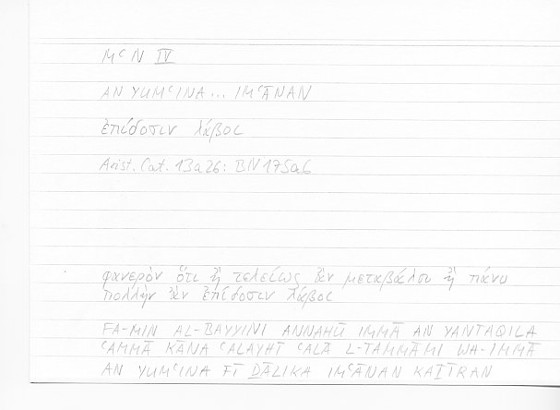 MʿN IV
AN YUMʿINA... IMʿĀNAN
ἐπίδοσιν λάβοι
Arist. Cat. 13a26: BN 175a6
φανερὸν ὅτι ἢ τελείως ἂν μεταβάλοι ἢ πάνυ
πολλὴν ἂν ἐπίδοσιν λάβοι
FA-MIN AL-BAYYINI ANNAHŪ IMMĀ AN YANTAQILA
ʿAMMĀ KĀNA ʿALAYHI ʿALĀ L-TAMMĀMI WA-IMMĀ
AN YUMʿINA FĪ ḎĀLIKA IMʿĀNAN KAṮĪRAN